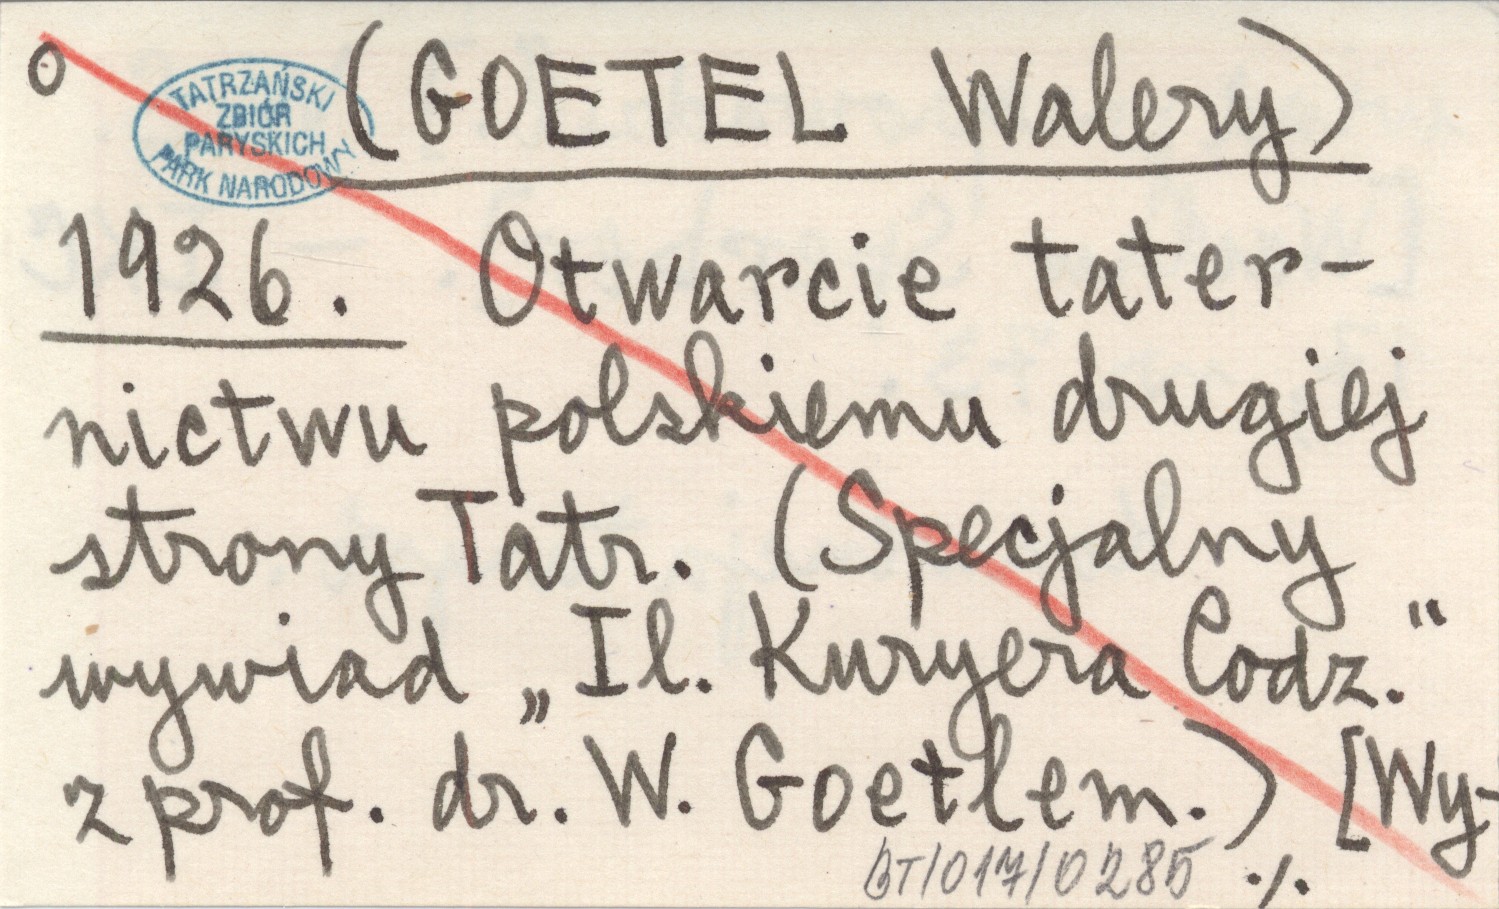 o
TATRZAŃSKI
ZBIÓR
PARYSKICH
PARK NARODOWY
(GOETEL Walery)
1926. Otwarcie tater-
nictwu polskiemu drugiej
strony Tatr. (Specjalny
wywiad „Il. Kuryera Codz."
z prof. dr. W. Goetlem.) [Wy-
BT/017/0285 ./.